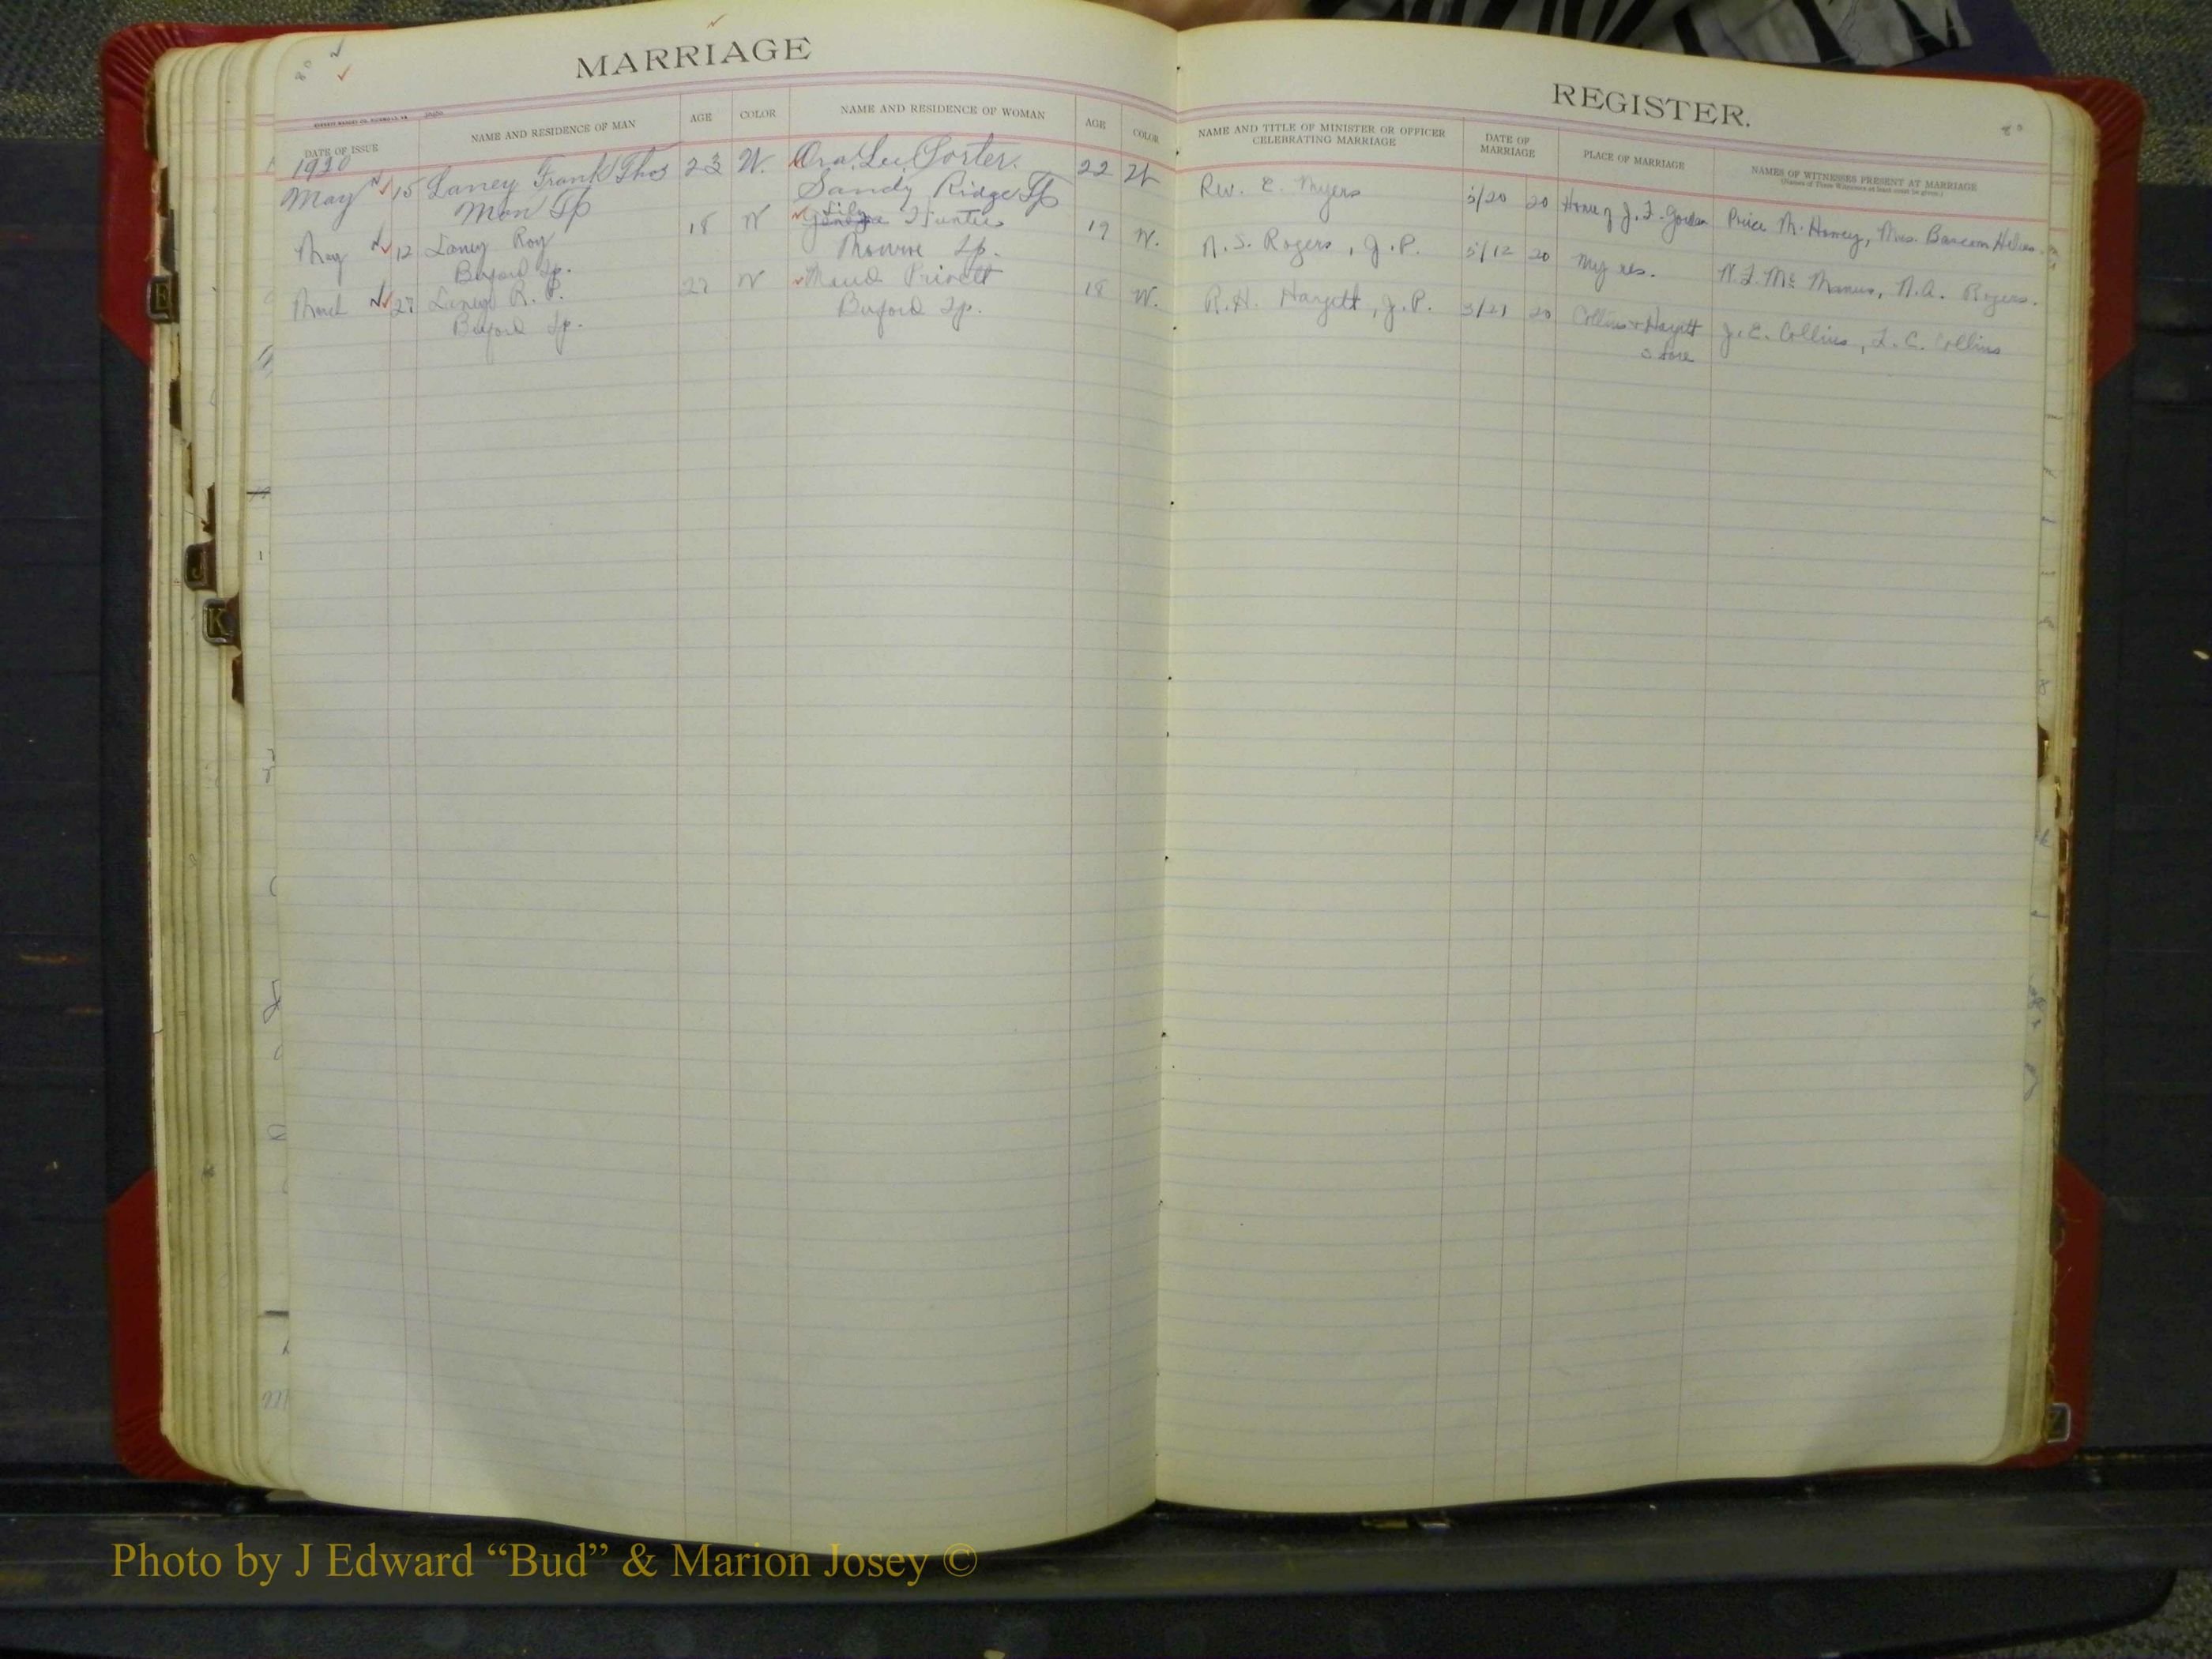 MARRIAGE
DATE OF ISSUE NAME AND RESIDENCE OF MAN AGE COLOR NAME AND RESIDENCE OF WOMAN AGE COLOR
1920
May 15 Laney Frank Thos 23 W. Ora Lee 22 W
Mon Tp Sandy Ridge Tp
May 12 Laney Roy 18 W Lily 19 W.
Buford Tp. Monroe Tp.
March 27 Laney R. P. 27 W Maud Privett 18 W.
Buford Tp. Buford Tp.
REGISTER.
NAME AND TITLE OF MINISTER OR OFFICER CELEBRATING MARRIAGE DATE OF MARRIAGE PLACE OF MARRIAGE NAMES OF WITNESSES PRESENT AT MARRIAGE
(Names of Three Witnesses at least must be given.)
Rev. E. Myers 5/20 20 Home of J. F. Price M. Honey, Mrs. Bascom
N. S. Rogers, J. P. 5/12 20 My res. Manus, N. A. Rogers.
R. H. Hargett, J. P. 20 Collins & Hargett J. E. Collins, L. C. Collins
Store
E
J
K
Z
Photo by J Edward “Bud” & Marion Josey ©